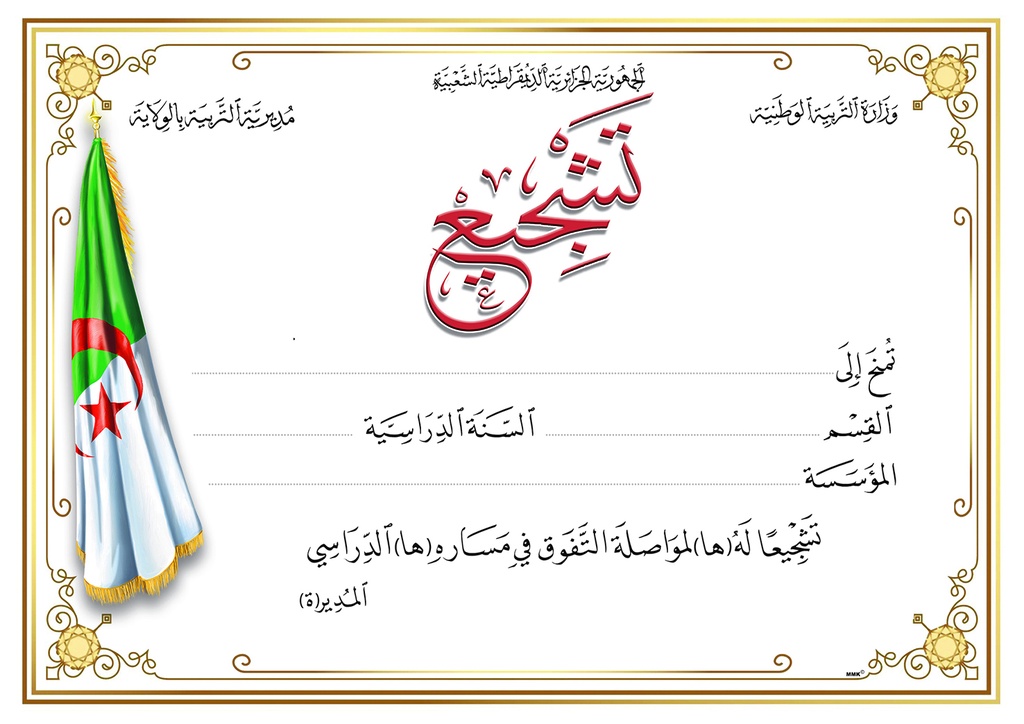 الجمهورية الجزائرية الديمقراطية الشعبية
وزارة التربية الوطنية
مديرية التربية بالولاية
تشجيع
تمنح إلى
القسم السنة الدراسية
المؤسسة
تشجيعا له(ها)لمواصلة التفوق في مساره(ها)الدراسي
المدير(ة)
MMK©